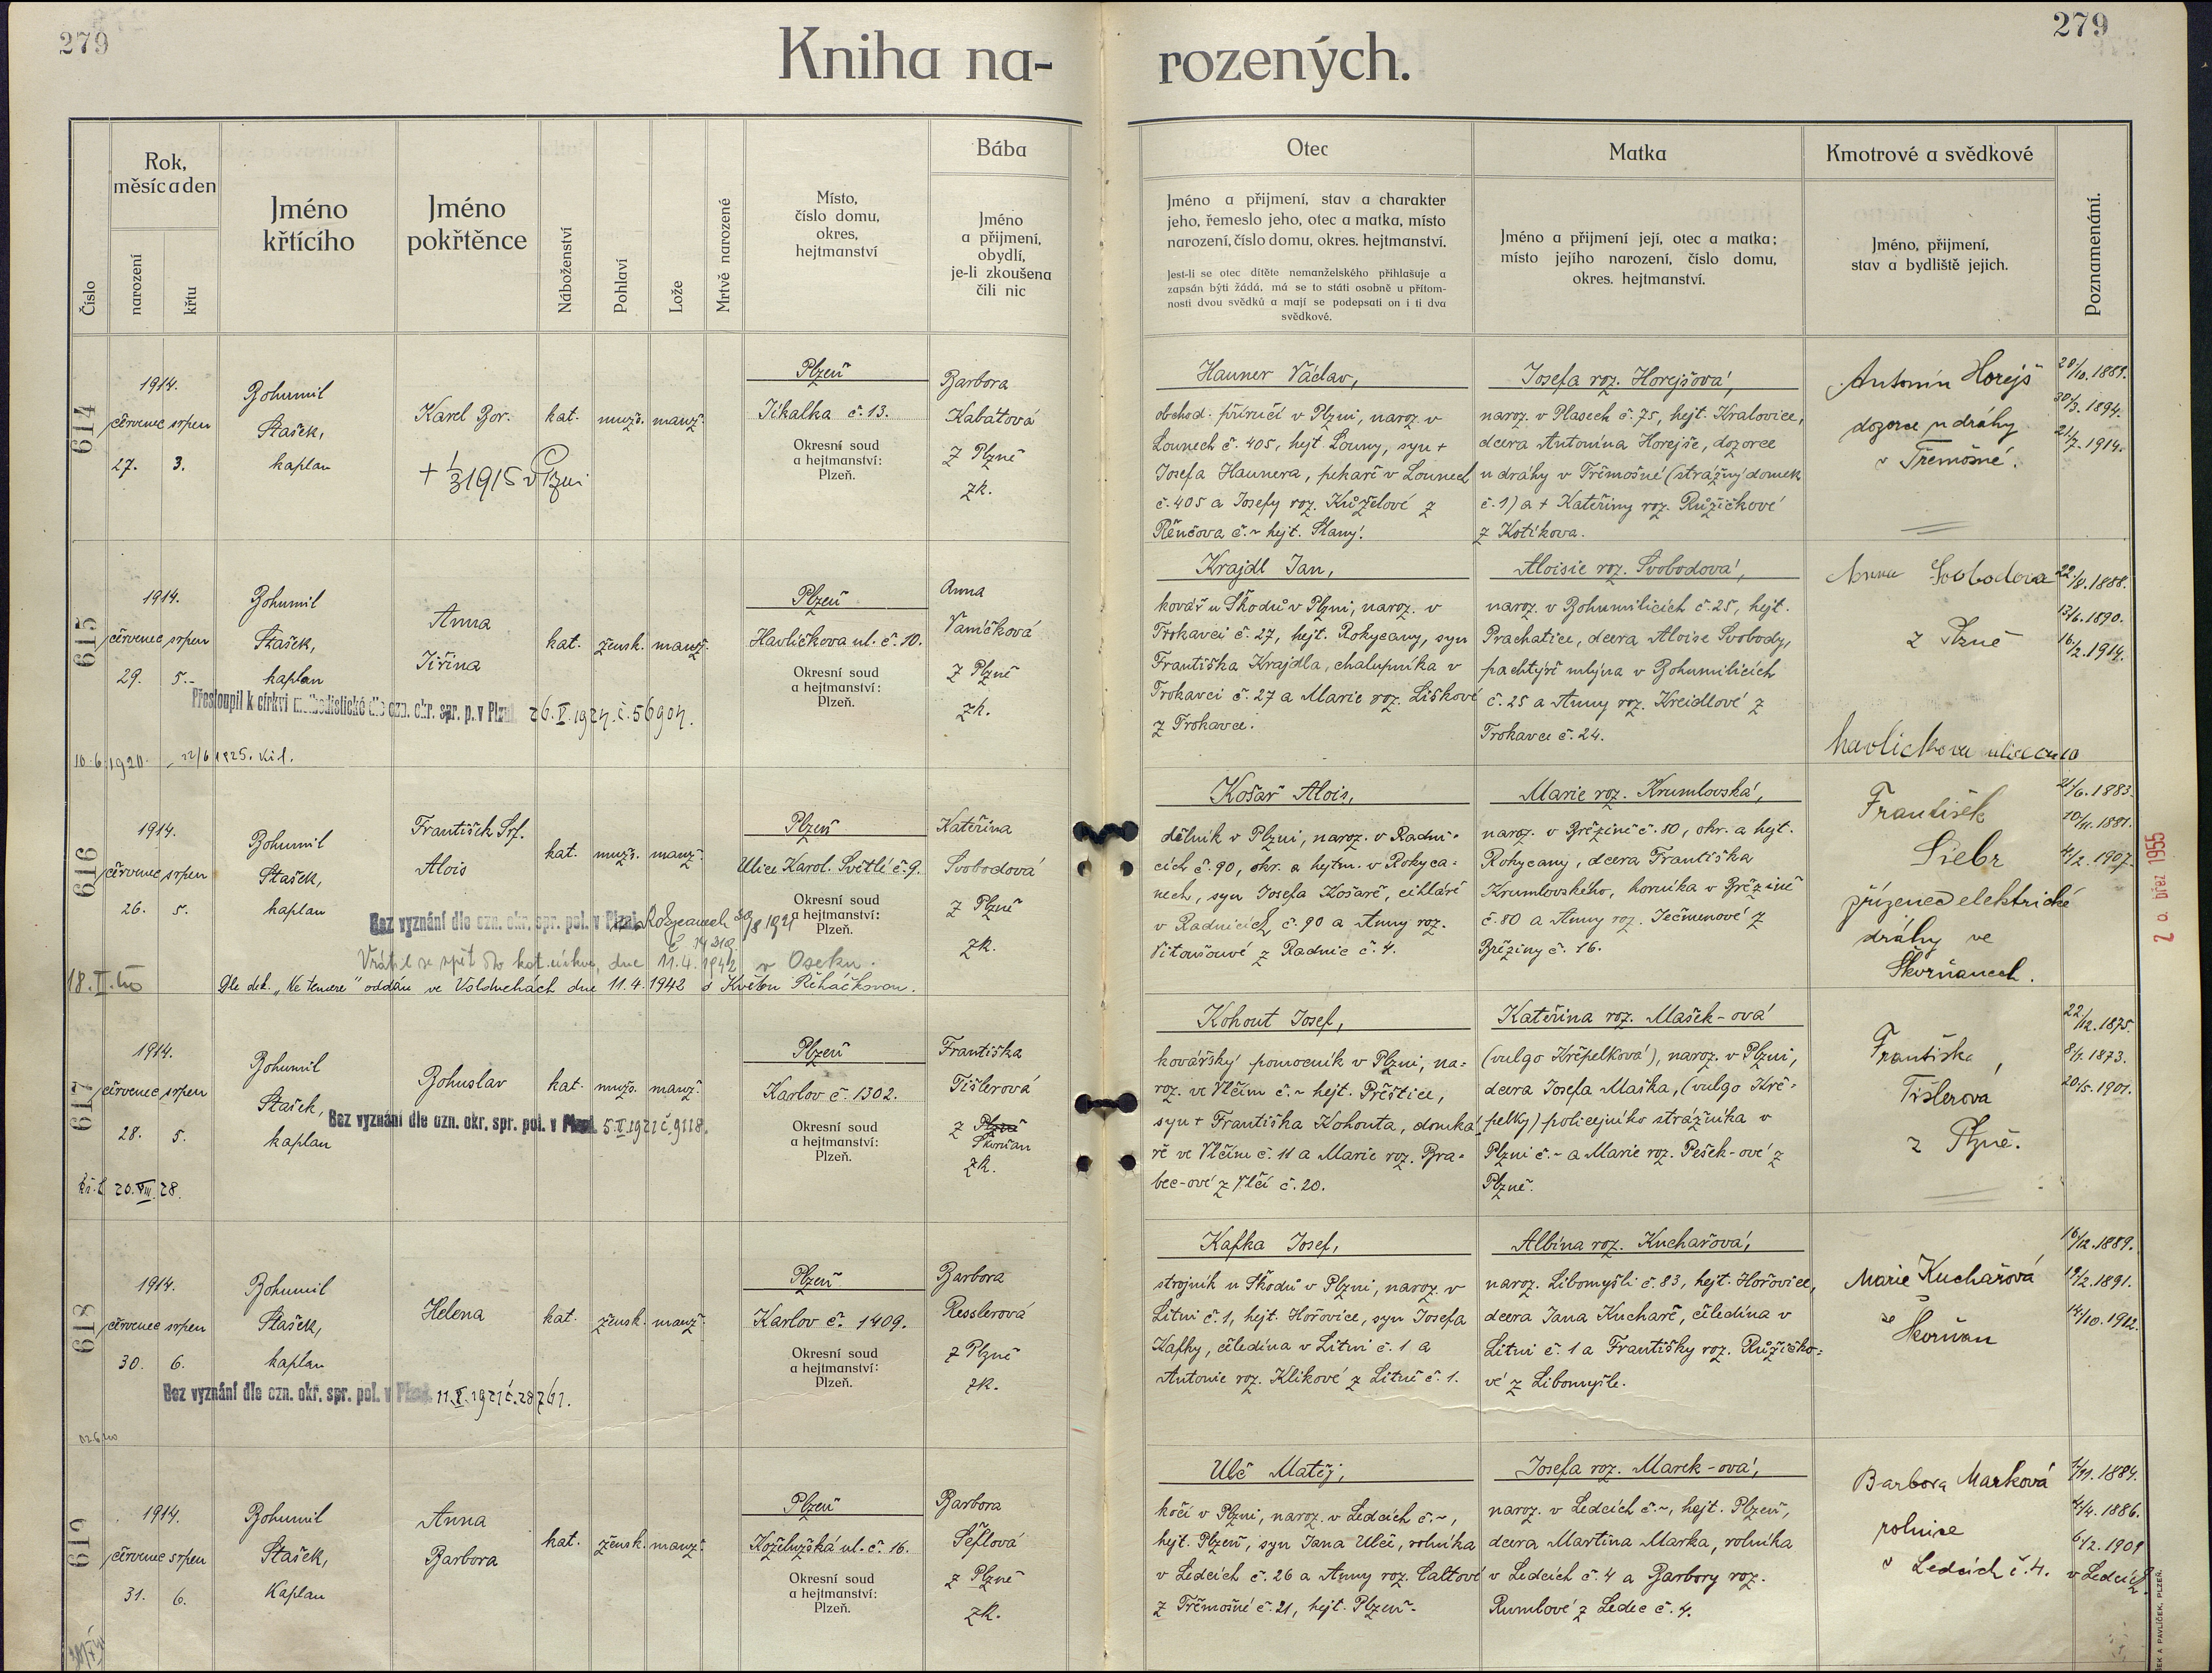 279
279
Kniha na- rozených.
Číslo
Rok, měsíc a den
narození
křtu
Jméno křtícího
Jméno pokřtěnce
Náboženství
Pohlaví
Lože
Mrtvě narozené
Místo,
číslo domu,
okres,
hejtmanství
Bába
Jméno
a přijmení,
obydlí,
je-li zkoušena
čili nic
Otec
Jméno a přijmení, stav a charakter
jeho, řemeslo jeho, otec a matka, místo
narození, číslo domu, okres. hejtmanství.
Jest-li se otec dítěte nemanželského přihlašuje a
zapsán býti žádá, má se to státi osobně u přítom-
nosti dvou svědků a mají se podepsati on i ti dva
svědkové.
Matka
Jméno a přijmení její, otec a matka;
místo jejího narození, číslo domu,
okres. hejtmanství.
Kmotrové a svědkové
Jméno, přijmení,
stav a bydliště jejich.
Poznamenání.
614
1914.
červenec srpen
27. 3.
Bohumil
Stašek,
kaplan
Karel Bor.
+ 1/3 1915 v Plzni
kat. mužs. manž.
Plzeň
Jikalka č. 13.
Okresní soud
a hejtmanství:
Plzeň.
Barbora
Kabátová
z Plzně
zk.
Hauner Václav,
obchod. příručí v Plzni, naroz. v
Lounech č. 405, hejt. Louny, syn +
Josefa Haunera, pekaře v Lounech
č. 405 a Josefy roz. Kůželové z
Řenčova č. ~ hejt. Slaný.
Josefa roz. Horejšová,
naroz. v Plasech č. 75, hejt. Kralovice,
dcera Antonína Horejše, dozorce
u dráhy v Třemošné (strážný domek
č. 1) a + Kateřiny roz. Růžičkové
z Kotíkova.
Antonín Horejš
dozorce u dráhy
v Třemošné.
28/10. 1889.
30/3. 1894.
21/7. 1914.
615
1914.
červenec srpen
29. 5.
Bohumil
Stašek,
kaplan
Anna
Jiřina
kat. žensk. manž.
Plzeň
Havlíčkova ul. č. 10.
Okresní soud
a hejtmanství:
Plzeň.
Anna
Vaníčková
z Plzně
zk.
Přestoupil k církvi methodistické dle ozn. okr. spr. p. v Plzni 26. V. 1924. č. 56904.
10. 6. 1920. 22/6 1925. Kil.
Krajdl Jan,
kovář u Škodů v Plzni, naroz. v
Trokavci č. 27, hejt. Rokycany, syn
Františka Krajdla, chalupníka v
Trokavci č. 27 a Marie roz. Liškové
z Trokavce.
Aloisie roz. Svobodová,
naroz. v Bohumilicích č. 25, hejt.
Prachatice, dcera Aloise Svobody,
pachtýře mlýna v Bohumilicích
č. 25 a Anny roz. Kreidlové z
Trokavce č. 24.
Anna Svobodova
z Plzně
havlickova ulice č. 10
22/8. 1888.
13/6. 1890.
16/2. 1914.
616
1914.
červenec srpen
26. 5.
Bohumil
Stašek,
kaplan
František Srf.
Alois
kat. mužs. manž.
Plzeň
Ulice Karol. Světlé č. 9.
Okresní soud
a hejtmanství:
Plzeň.
Kateřina
Svobodová
z Plzně
zk.
Bez vyznání dle ozn. okr. spr. pol. v Rokycanech 30/8 1921
Vrátil se zpět do kat. církve, dne 11. 4. 1942 v Oseku.
Dle dek. „Ne temere" oddán ve Volduchách dne 11. 4. 1942 s Květou Řeháčkovou.
Košař Alois,
dělník v Plzni, naroz. v Radni-
cích č. 90, okr. a hejtm. v Rokyca-
nech, syn Josefa Košaře, cihláře
v Radnicích č. 90 a Anny roz.
Vitoušové z Radnic č. 4.
Marie roz. Krumlovská,
naroz. v Březině č. 80, okr. a hejt.
Rokycany, dcera Františka
Krumlovského, horníka v Březině
č. 80 a Anny roz. Ječmenové z
Březiny č. 16.
František
Siebr
zřízenec elektrické
dráhy ve
Skvrňanech.
21/6. 1883.
10/11. 1881.
4/2. 1907.
2 a. břez 1955
617
1914.
červenec srpen
28. 5.
Bohumil
Stašek,
kaplan
Bohuslav
kat. mužs. manž.
Plzeň
Karlov č. 1302.
Okresní soud
a hejtmanství:
Plzeň.
Františka
Tišlerová
z Plzně
Skvrňan
zk.
Bez vyznání dle ozn. okr. spr. pol. v Plzni. 5. V. 1921 č. 9118.
kř. l. 20. VIII. 28.
Kohout Josef,
kovářský pomocník v Plzni, na-
roz. ve Vlčím č. ~ hejt. Přeštice,
syn + Františka Kohouta, domká-
ře ve Vlčím č. 11 a Marie roz. Bra-
bec-ové z Vlčí č. 20.
Kateřina roz. Mašek-ová
(vulgo Křepelková), naroz. v Plzni,
dcera Josefa Maška, (vulgo Kře-
pelky) policejního strážníka v
Plzni č. ~ a Marie roz. Pešek-ové z
Plzně.
Františka
Tišlerova
z Plzně.
22/12. 1875.
8/1. 1873.
20/5. 1901.
618
1914.
červenec srpen
30. 6.
Bohumil
Stašek,
kaplan
Helena
kat. žensk. manž.
Plzeň
Karlov č. 1409.
Okresní soud
a hejtmanství:
Plzeň.
Barbora
Resslerová
z Plzně
zk.
Bez vyznání dle ozn. okř. spr. pol. v Plzni. 11. V. 1921 č. 28761.
Kafka Josef,
strojník u Škodů v Plzni, naroz. v
Litni č. 1, hejt. Hořovice, syn Josefa
Kafky, čeledína v Litni č. 1 a
Antonie roz. Klikové z Litně č. 1.
Albína roz. Kuchařová,
naroz. Libomyšli č. 83, hejt. Hořovice,
dcera Jana Kuchaře, čeledína v
Litni č. 1 a Františky roz. Růžičko-
vé z Libomyšle.
Marie Kuchařová
ze Skvrňan
16/12. 1889.
19/2. 1891.
14/10. 1912.
619
1914.
červenec srpen
31. 6.
Bohumil
Stašek,
Kaplan
Anna
Barbora
kat. žensk. manž.
Plzeň
Koželužská ul. č. 16.
Okresní soud
a hejtmanství:
Plzeň.
Barbora
Šeflová
z Plzně
zk.
Ulč Matěj,
kočí v Plzni, naroz. v Ledcích č. ~,
hejt. Plzeň, syn Jana Ulče, rolníka
v Ledcích č. 26 a Anny roz. Caltové
z Třemošné č. 21, hejt. Plzeň.
Josefa roz. Marek-ová,
naroz. v Ledcích č. ~, hejt. Plzeň,
dcera Martina Marka, rolníka
v Ledcích č. 4 a Barbory roz.
Rumlové z Ledec č. 4.
Barbora Marková
rolnice
v Ledcích č. 4.
1/11. 1884.
4/4. 1886.
6/2. 1909
v Ledcích.